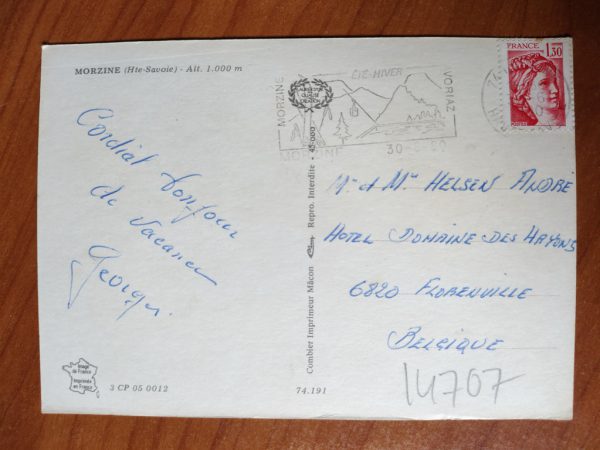 MORZINE (Hte-Savoie) - Alt. 1.000 m
Cordial bonjour
de vacances
Georges
Image
de France
imprimée
en France
3 CP 05 0012
74.191
Combier Imprimeur Mâcon Repro. Interdite - 45.000
MORZINE
ÉTÉ-HIVER
VORIAZ
MORZINE
FRANCE
1,30
Mr et Mme HELSEN ANDRÉ
HOTEL DOMAINE DES HAYONS
6820 FLORENVILLE
BELGIQUE
14707